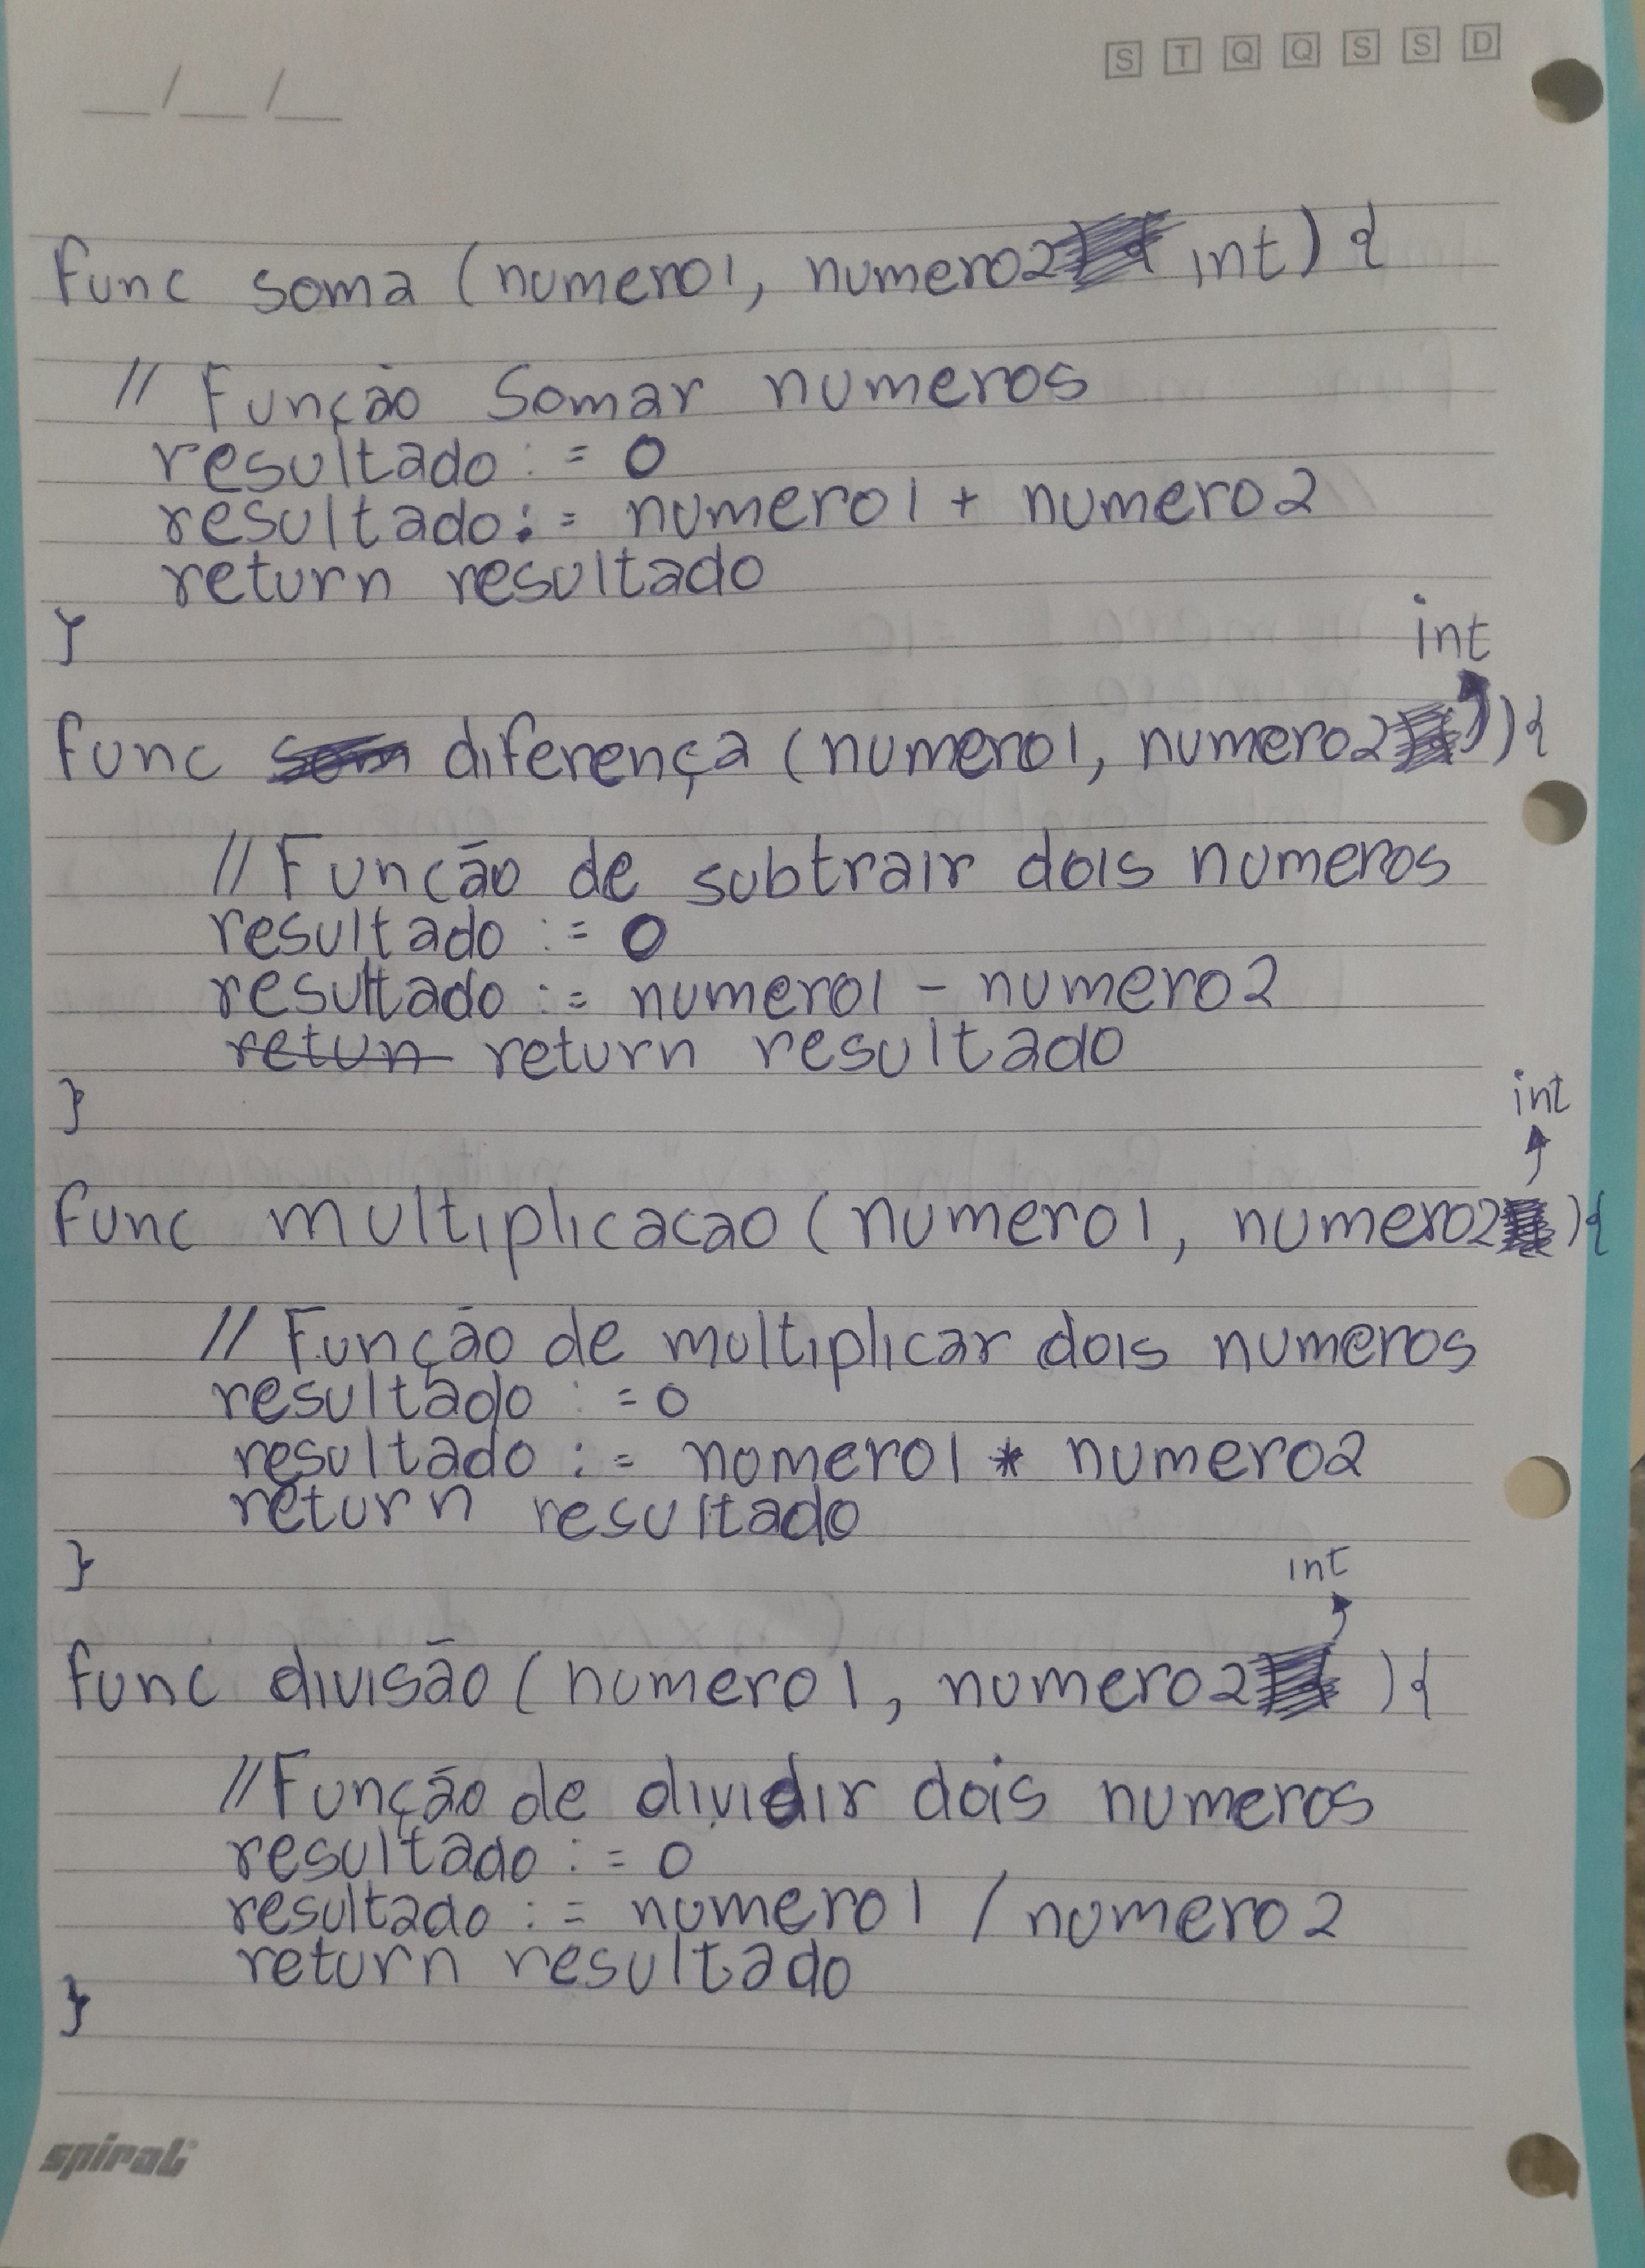 S T Q Q S S D
__/__/__
func soma (numero1, numero2 int) {
// Função Somar numeros
resultado := 0
resultado := numero1 + numero2
return resultado
}
int
func diferença (numero1, numero2 ){
// Função de subtrair dois numeros
resultado := 0
resultado := numero1 - numero2
retun return resultado
}
int
func multiplicacao (numero1, numero2 ){
// Função de multiplicar dois numeros
resultado := 0
resultado := numero1 * numero2
return resultado
}
int
func divisão (numero1, numero2 ){
// Função de dividir dois numeros
resultado := 0
resultado := numero1 / numero2
return resultado
}
spiral